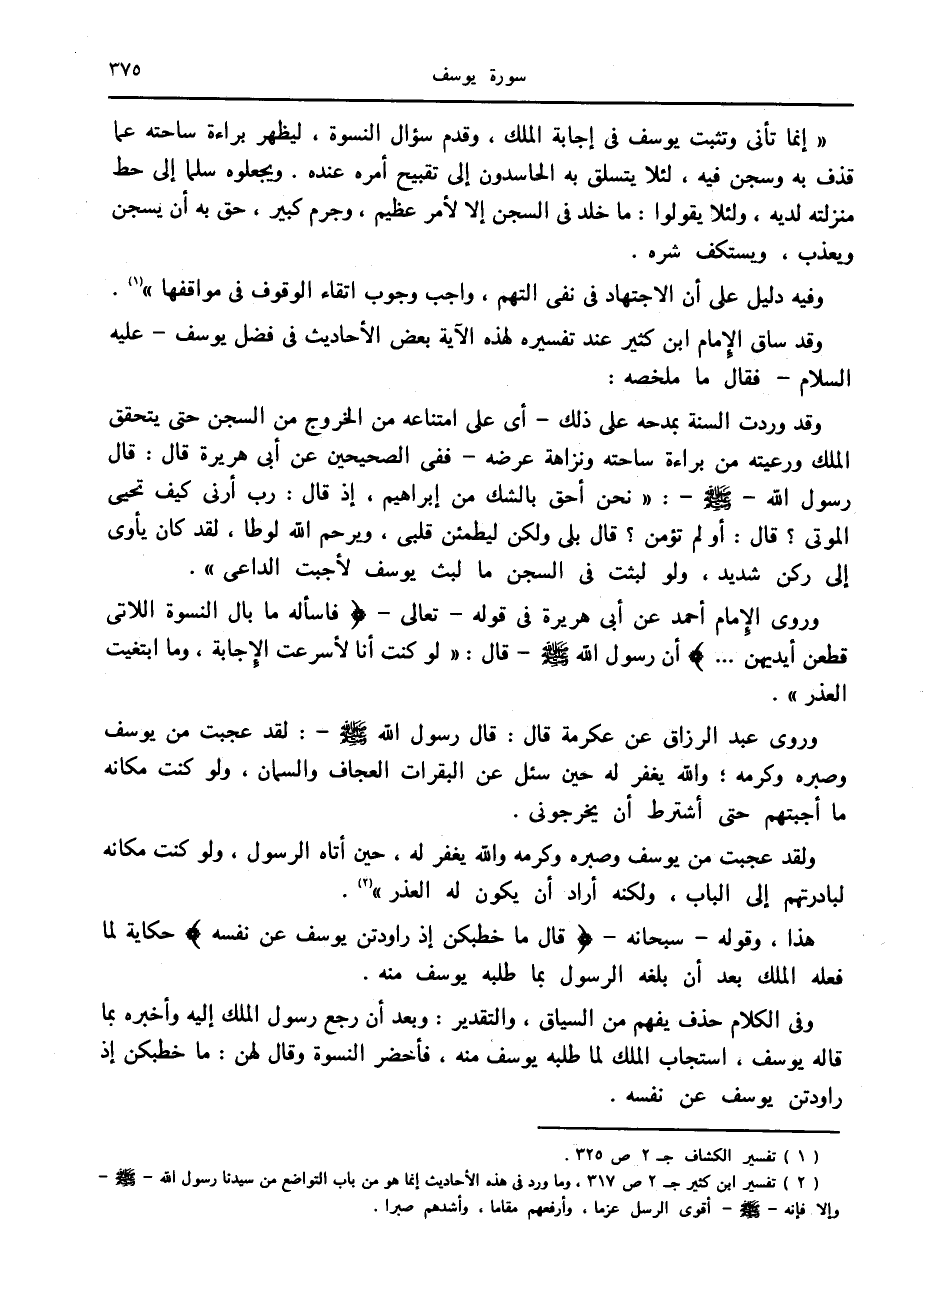 سورة يوسف
٣٧٥
« إنما تأنى وتثبت يوسف فى إجابة الملك ، وقدم سؤال النسوة ، ليظهر براءة ساحته عما
قذف به وسجن فيه ، لئلا يتسلق به الحاسدون إلى تقبيح أمره عنده . ويجعلوه سلما إلى حط
منزلته لديه ، ولئلا يقولوا : ما خلد فى السجن إلا لأمر عظيم ، وجرم كبير ، حق به أن يسجن
ويعذب ، ويستكف شره .
وفيه دليل على أن الاجتهاد فى نفى التهم ، واجب وجوب اتقاء الوقوف فى مواقفها »(١) .
وقد ساق الإمام ابن كثير عند تفسيره لهذه الآية بعض الأحاديث فى فضل يوسف – عليه
السلام – فقال ما ملخصه :
وقد وردت السنة بمدحه على ذلك – أى على امتناعه من الخروج من السجن حتى يتحقق
الملك ورعيته من براءة ساحته ونزاهة عرضه – ففى الصحيحين عن أبى هريرة قال : قال
رسول الله – ﷺ – : « نحن أحق بالشك من إبراهيم ، إذ قال : رب أرنى كيف تحيى
الموتى ؟ قال : أو لم تؤمن ؟ قال بلى ولكن ليطمئن قلبى ، ويرحم الله لوطا ، لقد كان يأوى
إلى ركن شديد ، ولو لبثت فى السجن ما لبث يوسف لأجبت الداعى » .
وروى الإمام أحمد عن أبى هريرة فى قوله – تعالى – ﴿ فاسأله ما بال النسوة اللاتى
قطعن أيديهن ... ﴾ أن رسول الله ﷺ – قال : « لو كنت أنا لأسرعت الإجابة ، وما ابتغيت
العذر » .
وروى عبد الرزاق عن عكرمة قال : قال رسول الله ﷺ – : لقد عجبت من يوسف
وصبره وكرمه ؛ والله يغفر له حين سئل عن البقرات العجاف والسمان ، ولو كنت مكانه
ما أجبتهم حتى أشترط أن يخرجونى .
ولقد عجبت من يوسف وصبره وكرمه والله يغفر له ، حين أتاه الرسول ، ولو كنت مكانه
لبادرتهم إلى الباب ، ولكنه أراد أن يكون له العذر »(٢) .
هذا ، وقوله – سبحانه – ﴿ قال ما خطبكن إذ راودتن يوسف عن نفسه ﴾ حكاية لما
فعله الملك بعد أن بلغه الرسول بما طلبه يوسف منه .
وفى الكلام حذف يفهم من السياق ، والتقدير : وبعد أن رجع رسول الملك إليه وأخبره بما
قاله يوسف ، استجاب الملك لما طلبه يوسف منه ، فأخضر النسوة وقال لهن : ما خطبكن إذ
راودتن يوسف عن نفسه .
( ١ ) تفسير الكشاف جـ ٢ ص ٣٢٥ .
( ٢ ) تفسير ابن كثير جـ ٢ ص ٣١٧ ، وما ورد فى هذه الأحاديث إنما هو من باب التواضع من سيدنا رسول الله – ﷺ –
وإلا فإنه – ﷺ – أقوى الرسل عزما ، وأرفعهم مقاما ، وأشدهم صبرا .